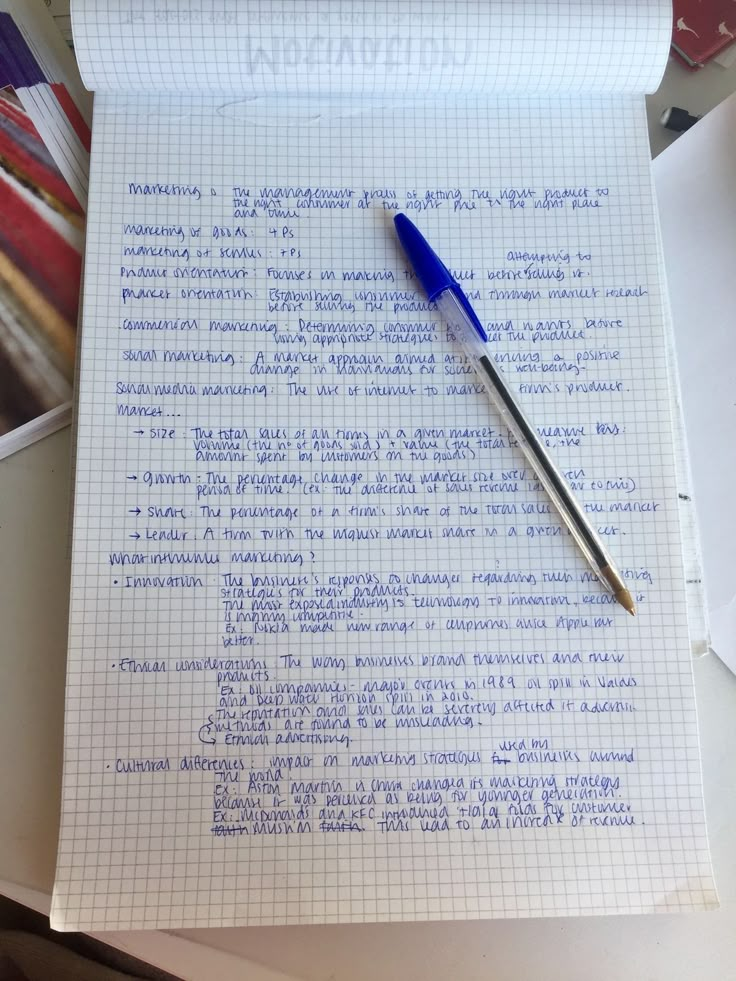 Motivation
Marketing : The management process of getting the right product to
the right consumer at the right price in the right place
and time
marketing of goods: 4 Ps
marketing of services: 7 Ps
attempting to
Product orientation: Focuses on making the product before selling it.
Market orientation: Establishing consumer demand through market research
before selling the product
Commercial marketing: Determining consumer needs and wants before
using appropriate strategies to the product.
Social marketing: A market approach aimed at influencing a positive
change in individuals for well-being.
Social media marketing: The use of internet to market firm's product.
Market...
→ Size: The total sales of all firms in a given market.
volume (the n° of goods sold) + value (the total the
amount spent by customers on the goods)
→ Growth: The percentage change in the market size over given
period of time. (ex: the difference of sales revenue
→ Share: The percentage of a firm's share of the total sales the market
→ Leader: A firm with the highest market share in a given market.
What influences marketing?
• Innovation: The business's responses to changes regarding their marketing
strategies for their products.
The most exposed industry is technology to innovation, because it
is highly competitive.
Ex: Nokia made new range of cellphones since Apple
better.
• Ethical considerations: The way businesses brand themselves and their
products.
Ex: Oil companies - major events in 1989 oil spill in Valdes
and Deep Water Horizon spill in 2010.
The reputation and sales can be severely affected if
methods are found to be misleading.
Ethical advertising.
used by
• Cultural differences: impact on marketing strategies businesses around
the world.
Ex: Aston Martin in China changed its marketing strategy
because it was perceived as being for younger generation.
Ex: McDonalds and KFC introduced Halal foods for customer
faith Muslim faith. This lead to an increase of revenue.